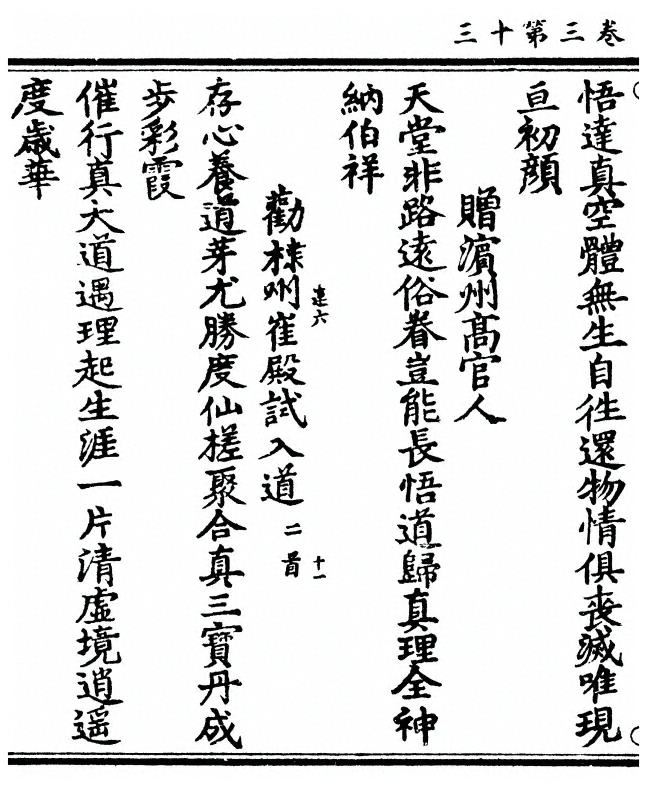 卷三第十三
悟達真空體無生自徃還物情俱喪滅唯現
亘初顏
贈濵州高官人
天堂非路遠俗眷豈能長悟道歸真理全神
納伯祥
勸棣州崔殿試入道二首
逹六
十一
存心養道芽尤勝度仙槎聚合真三寶丹成
步彩霞
催行真大道遇理起生涯一片清虛境逍遥
度歳華